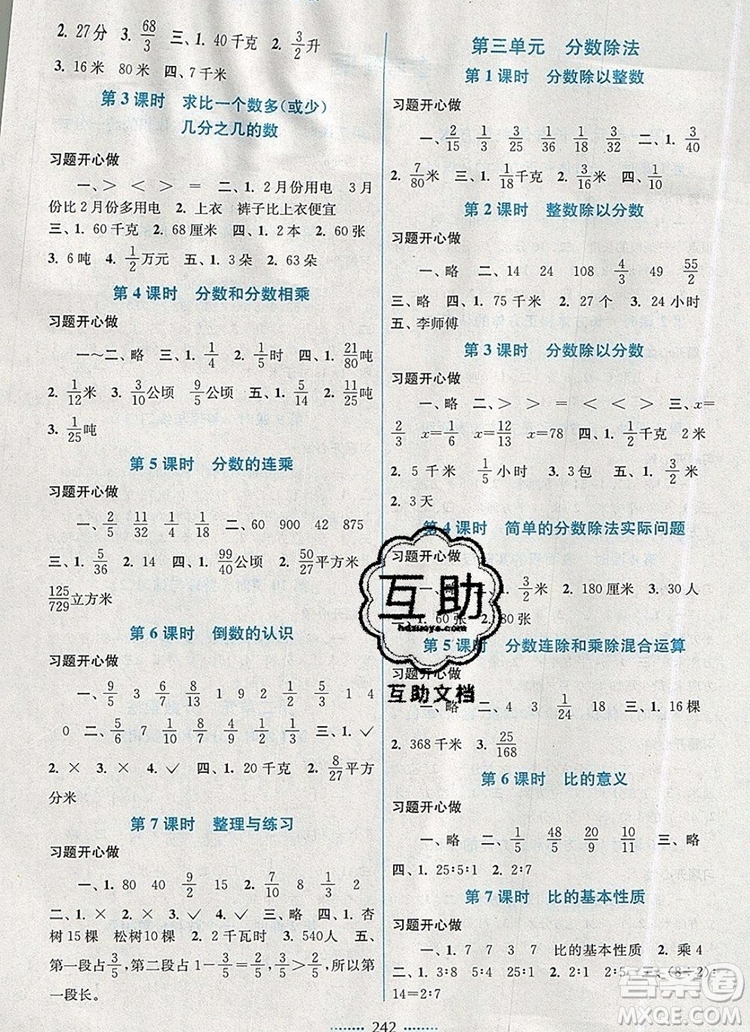 2. 27分 3. 68/3 三、1. 40千克 2. 3/2升
3. 16米 80米 四、7千克
第3课时 求比一个数多(或少)
几分之几的数
习题开心做
一、> < > = 二、1. 2月份用电 3月
份比2月份多用电 2. 上衣 裤子比上衣便宜
三、1. 60千克 2. 68厘米 四、1. 2本 2. 60张
3. 6吨 4. 1/2万元 五、1. 3朵 2. 3朵
第4课时 分数和分数相乘
习题开心做
一～二、略 三、1. 1/4 2. 1/2 四、1. 21/80吨
2. 1/12米 3. 3/10公顷 9/10公顷 五、1. 1/2吨 2. 1/25吨
3. 1/25吨
第5课时 分数的连乘
习题开心做
一、1/5 2/15 1/2 二、60 900 42 875
三、1. 5/36 2. 5/14 四、1. 99/40公顷 2. 50/27平方米
125/729立方米
第6课时 倒数的认识
习题开心做
一、4/5 6/5 9/4 1/9 1/8 1 2/1 2 1/2 5/3
0 二、5/6 7/6 1/9 1/7 1/4 1 三、1. ✓
2. × 3. × 4. ✓ 四、1. 20千克 2. 8/27平方
分米
第7课时 整理与练习
习题开心做
一、1. 80 40 9/2 15 2. 7/10 7/8 4/9
二、1. × 2. ✓ 3. ✓ 4. × 三、略 四、1. 杏
树15棵 松树10棵 2. 2千瓦时 3. 540人 五、
第一段占3/5，第二段占1－3/5＝2/5，3/5＞2/5，所以第
一段长。
第三单元 分数除法
第1课时 分数除以整数
习题开心做
一、2/15 4/15 1/9 二、1/4 1/9 3/8 三、1. 1/6米
2. 7/80米 四、1. 1/18千克 2. 1/9千克 3. 1/11
第2课时 整数除以分数
习题开心做
一、略 二、14 27 108 4/3 49 55/32
三、1. 75千米 2. 9/2千克 四、1. 24 2. 24小时
五、李师傅
第3课时 分数除以分数
习题开心做
一、略 二、> > = < < > 三、x＝
2/3 x＝1/6 x＝4/9 x＝78 四、1. 1/2千克 1/2米
2. 5千米 1/5小时 3. 3包 五、1. 1/3千克
2. 3天
第4课时 简单的分数除法实际问题
习题开心做
3/2米 2. 180厘米 3. 30人
60张 80张
第5课时 分数连除和乘除混合运算
习题开心做
一、略 二、4 3 1/24 18 三、1. 16棵
2. 368千米 3. 25/168
第6课时 比的意义
习题开心做
一、略 二、1/5 48/5 20/9 10/11 三、略
四、1. 25∶5∶1 2. 2∶7
第7课时 比的基本性质
习题开心做
一、1. 7 7 3 7 比的基本性质 2. 乘4
二、1. 3∶8 2. 5∶24 3. 5∶4
14＝2∶7
互助
hdzuoye.com
互助文档
答案圈
MXQE.COM
242